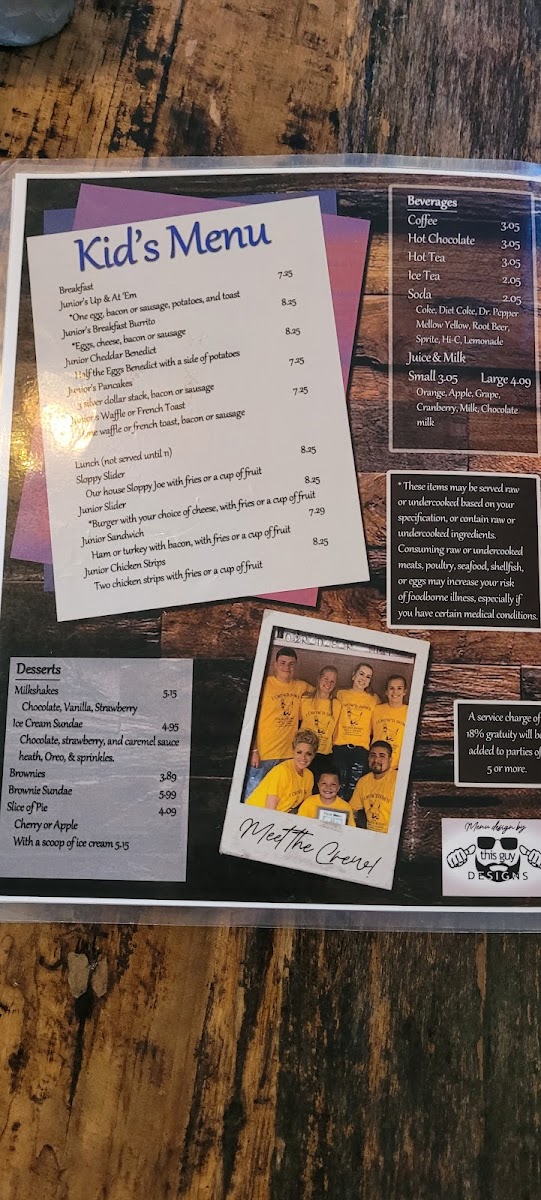 Kid's Menu
Breakfast
Junior's Up & At 'Em 7.25
*One egg, bacon or sausage, potatoes, and toast
Junior's Breakfast Burrito 8.25
*Eggs, cheese, bacon or sausage
Junior Cheddar Benedict 8.25
Half the Eggs Benedict with a side of potatoes
Junior's Pancakes 7.25
3 silver dollar stack, bacon or sausage
Junior's Waffle or French Toast 7.25
One waffle or french toast, bacon or sausage
Lunch (not served until 11)
Sloppy Slider 8.25
Our house Sloppy Joe with fries or a cup of fruit
Junior Slider 8.25
*Burger with your choice of cheese, with fries or a cup of fruit
Junior Sandwich 7.29
Ham or turkey with bacon, with fries or a cup of fruit
Junior Chicken Strips 8.25
Two chicken strips with fries or a cup of fruit
Beverages
Coffee 3.05
Hot Chocolate 3.05
Hot Tea 3.05
Ice Tea 2.05
Soda 2.05
Coke, Diet Coke, Dr. Pepper
Mellow Yellow, Root Beer,
Sprite, Hi-C, Lemonade
Juice & Milk
Small 3.05 Large 4.09
Orange, Apple, Grape,
Cranberry, Milk, Chocolate
milk
* These items may be served raw
or undercooked based on your
specification, or contain raw or
undercooked ingredients.
Consuming raw or undercooked
meats, poultry, seafood, shellfish,
or eggs may increase your risk
of foodborne illness, especially if
you have certain medical conditions.
Desserts
Milkshakes 5.15
Chocolate, Vanilla, Strawberry
Ice Cream Sundae 4.95
Chocolate, strawberry, and caremel sauce
heath, Oreo, & sprinkles.
Brownies 3.89
Brownie Sundae 5.99
Slice of Pie 4.09
Cherry or Apple
With a scoop of ice cream 5.15
Meet the Crew!
A service charge of
18% gratuity will be
added to parties of
5 or more.
Menu design by
this guy
DESIGNS